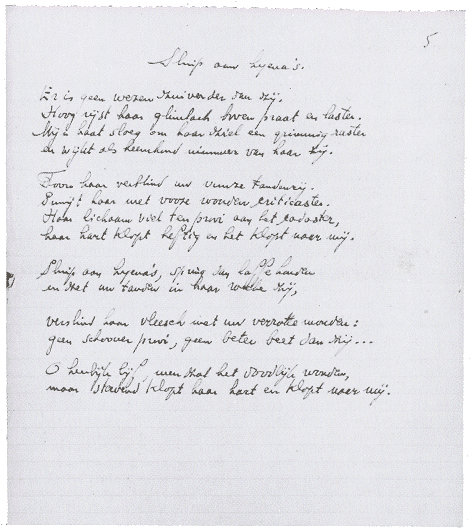 5
Sluip aan hyena's.
Er is geen wezen zuiverder dan zij.
Hoog rijst haar glimlach boven praat en laster.
Mijn haat sloeg om haar ziel een grimmig raster
en wijkt als heimhond nimmer van haar zij.
Toon haar verblind uw vunze tandenrij.
haar met voze wonden criticaster.
Haar lichaam viel ten prooi aan het
haar hart klopt heftig en het klopt naar mij.
Sluip aan hyena's, spring dan laffe honden
en zet uw tanden in haar weeke zij,
verslind haar vleesch met uw verrotte monden:
geen schooner prooi, geen beter beet dan zij...
O heerlijk lijf, men zal het doodlijk wonden,
maar stervend klopt haar hart en klopt naar mij.